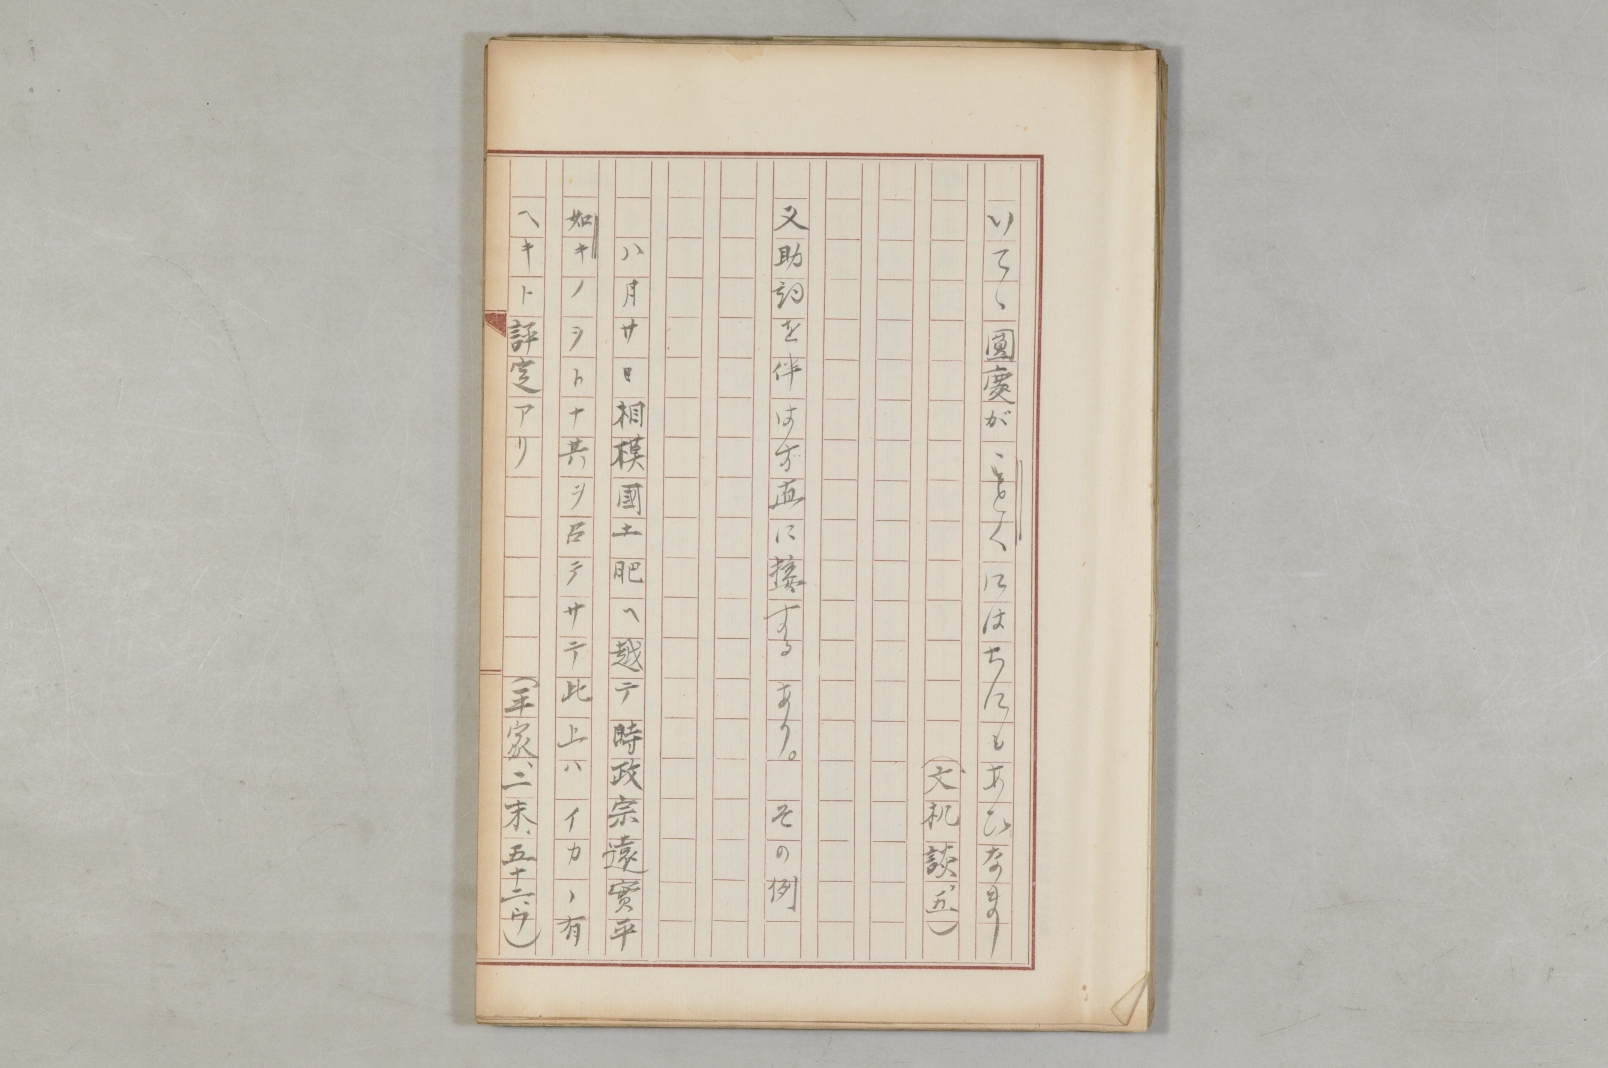 いてゝ圓慶がことくにはちにもあひなまし
(文机談、五)
又助詞を伴はず直に接するあり。その例
八月廿日相模國土肥ヘ越テ時政宗遠實平
如キノヲトナ共ヲ召テサテ此上ハイカヽ有
ヘキト評定アリ
(平家、二末、五十二、ウ)